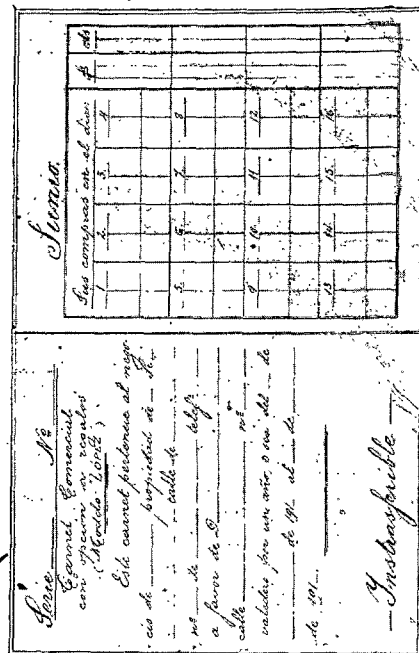 Serie Nº
Carnet Comercial
con opción a regalos
(Modelo López)
Este carnet pertenece al nego-
cio de propiedad de D.
calle de
nº de teléf.
a favor de D
calle nº
valedero por un año o sea del de
de 191 al de
de 191
Instrasferible
Sus compras en el dia:
1 2 3 4
5 6 7 8
9 10 11 12
13 14 15 16